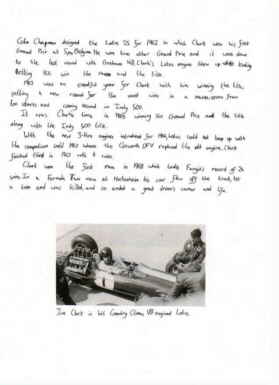 Colin Chapman designed the Lotus 25 for 1962 in which Clark won his first
Grand Prix at Spa, Belgium. He won three other Grand Prix and it was down
to the last round with Graham Hill, Clark's Lotus engine blew up
Hill win the and the title.
1963 was an year for Clark with him winning the title,
setting a new record for the most wins in a season, seven from
ten starts and coming second in Indy 500.
It was Clark's time in 1965 winning six Grand Prix and the title
along with the Indy 500 title.
With the new 3-litre engines introduced for 1966, Lotus could not keep up with
the competition until 1967 where the Cosworth DFV replaced the old engine, Clark
finished third in 1967 with 4 wins.
Clark won the first race in 1968 which broke Fangio's record of 24
wins. In a Formula Two race at Hockenheim his car flew off the track, hit
a tree and was killed, and so ended a great driver's career and life.
Jim Clark in his Coventry Climax V8 engined Lotus.